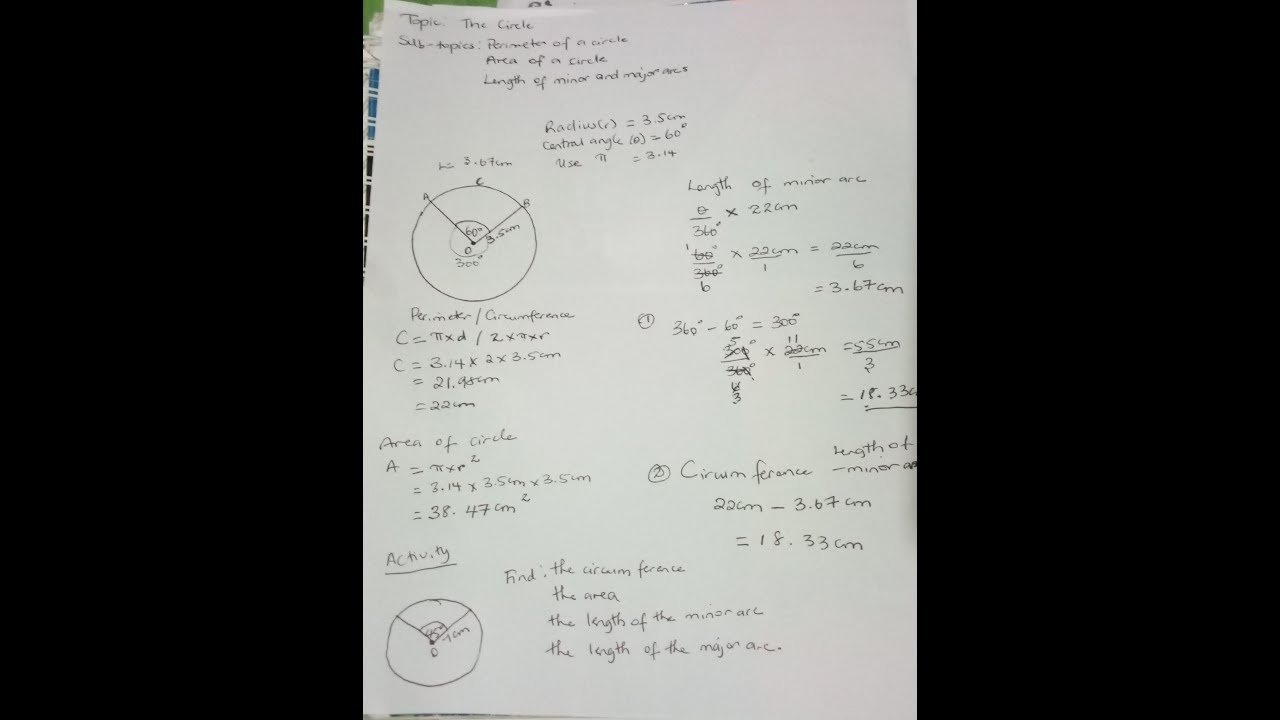 Topic: The Circle
Sub-topics: Perimeter of a circle
Area of a circle
Length of minor and major arcs
Radius(r) = 3.5cm
Central angle (θ) = 60°
Use π = 3.14
L= 3.67cm
C
A
B
60°
3.5cm
O
300°
Perimeter/Circumference
C = π×d / 2×π×r
C = 3.14 × 2 × 3.5cm
= 21.98cm
= 22cm
Area of circle
A = π×r²
= 3.14 × 3.5cm × 3.5cm
= 38.47cm²
Length of minor arc
θ/360° × 22cm
1
60°/360° × 22cm/1 = 22cm/6
6
= 3.67cm
① 360° - 60° = 300°
5 11
300°/360° × 22cm/1 = 55cm/3
6
3
= 18.33c
② Circumference - Length of minor a
22cm - 3.67cm
= 18.33cm
Activity
7cm
O
Find: the circumference
the area
the length of the minor arc
the length of the major arc.